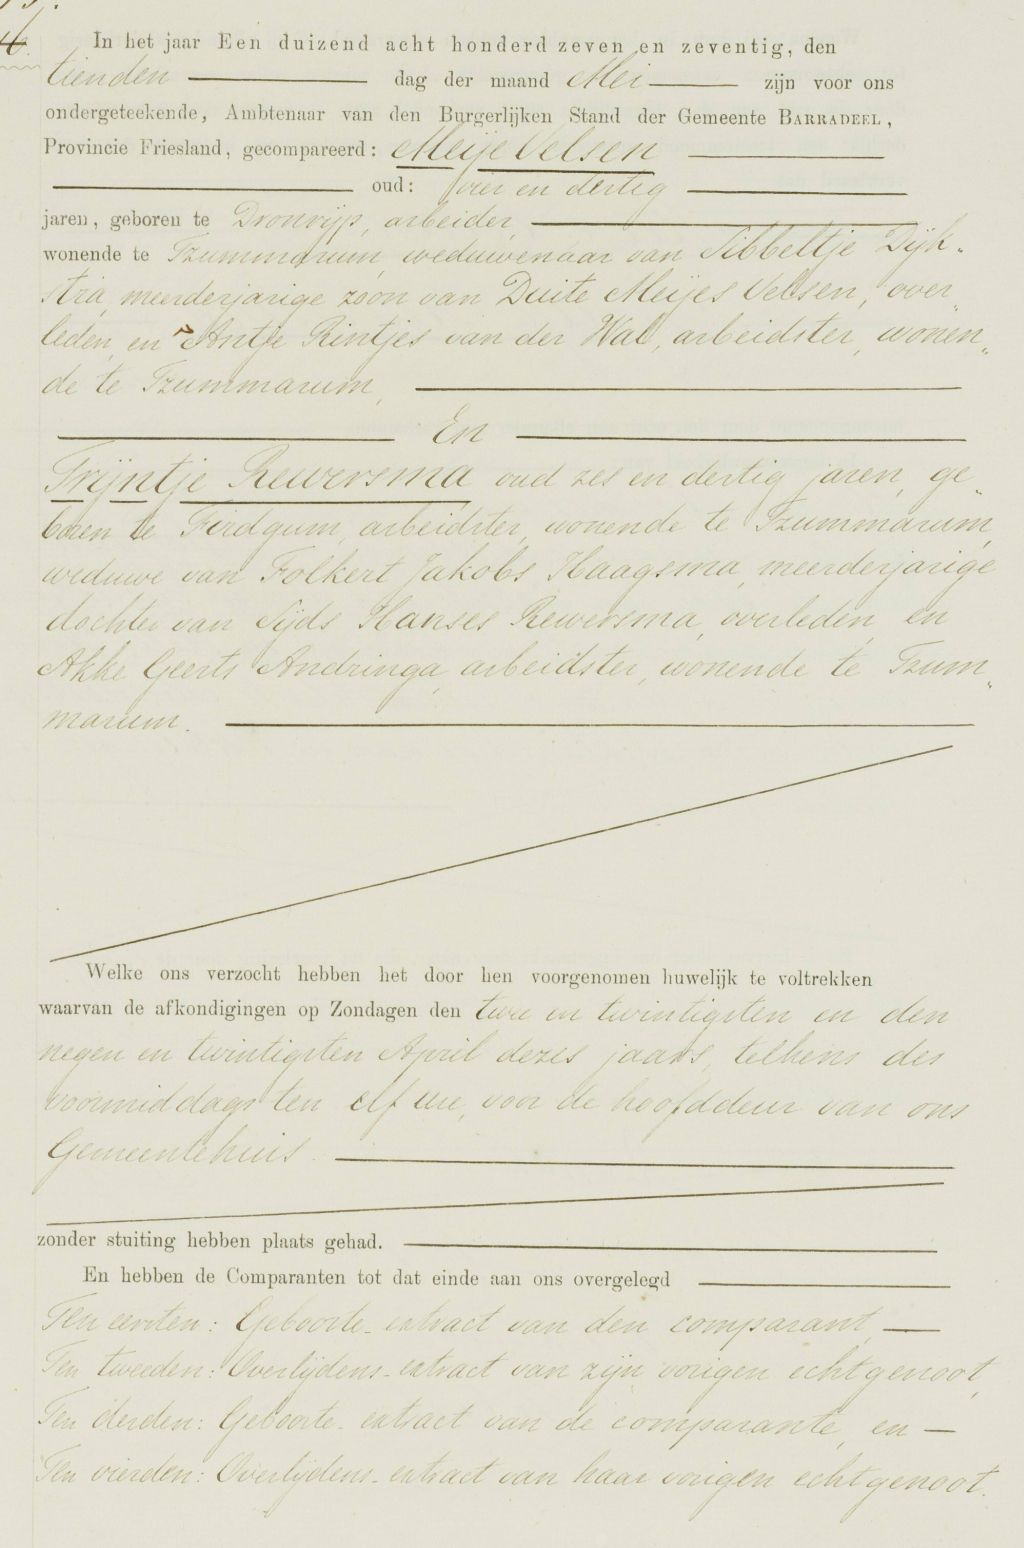 In het jaar Een duizend acht honderd zeven en zeventig, den
tienden dag der maand Mei zijn voor ons
ondergeteekende, Ambtenaar van den Burgerlijken Stand der Gemeente BARRADEEL,
Provincie Friesland, gecompareerd: Meije Velsen
oud: vier en dertig
jaren, geboren te Dronrijp, arbeider,
wonende te Tzummarum, weduwenaar van Sibbeltje Dijk-
stra, meerderjarige zoon van Duite Meijes Velsen, over„
leden, en Antje Rintjes van der Wal, arbeidster, wonen„
de te Tzummarum,
En
Trijntje Rewersma oud zes en dertig jaren, ge„
boren te Firdgum, arbeidster, wonende te Tzummarum,
weduwe van Folkert Jakobs Haagsma, meerderjarige
dochter van Sijds Hanses Rewersma, overleden, en
Akke Geerts Andringa, arbeidster, wonende te Tzum„
marum.
Welke ons verzocht hebben het door hen voorgenomen huwelijk te voltrekken
waarvan de afkondigingen op Zondagen den twee en twintigsten en den
negen en twintigsten April dezes jaars, telkens des
voormiddags ten elf ure, voor de hoofddeur van ons
Gemeentehuis
zonder stuiting hebben plaats gehad.
En hebben de Comparanten tot dat einde aan ons overgelegd
Ten eersten: Geboorte-extract van den comparant,
Ten tweeden: Overlijdens-extract van zijn vorigen echtgenoot,
Ten derden: Geboorte-extract van de comparante, en
Ten vierden: Overlijdens-extract van haar vorigen echtgenoot.